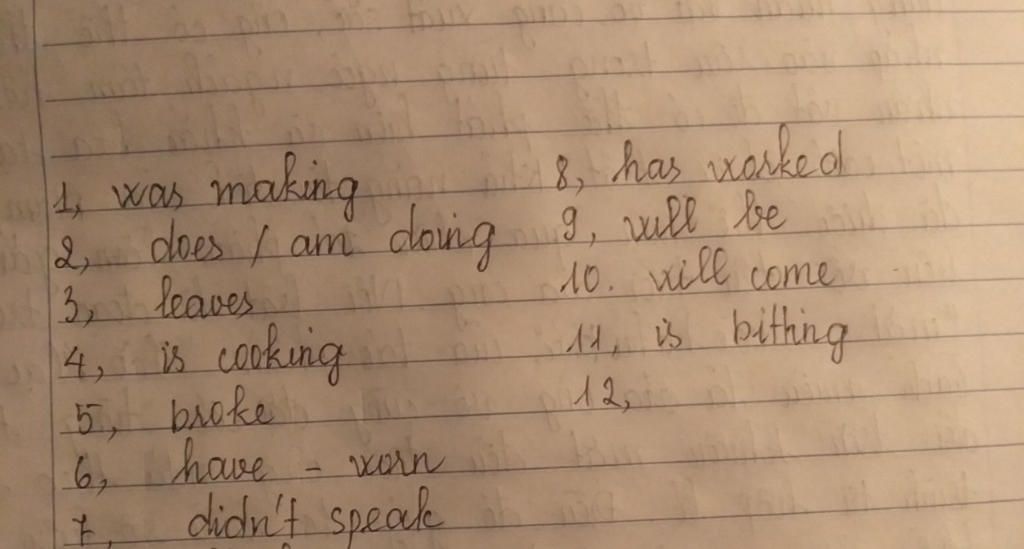 1, was making
2, does / am doing
3, leaves
4, is cooking
5, broke
6, have - worn
7, didn't speak
8, has worked
9, will be
10. will come
11, is bitting
12,